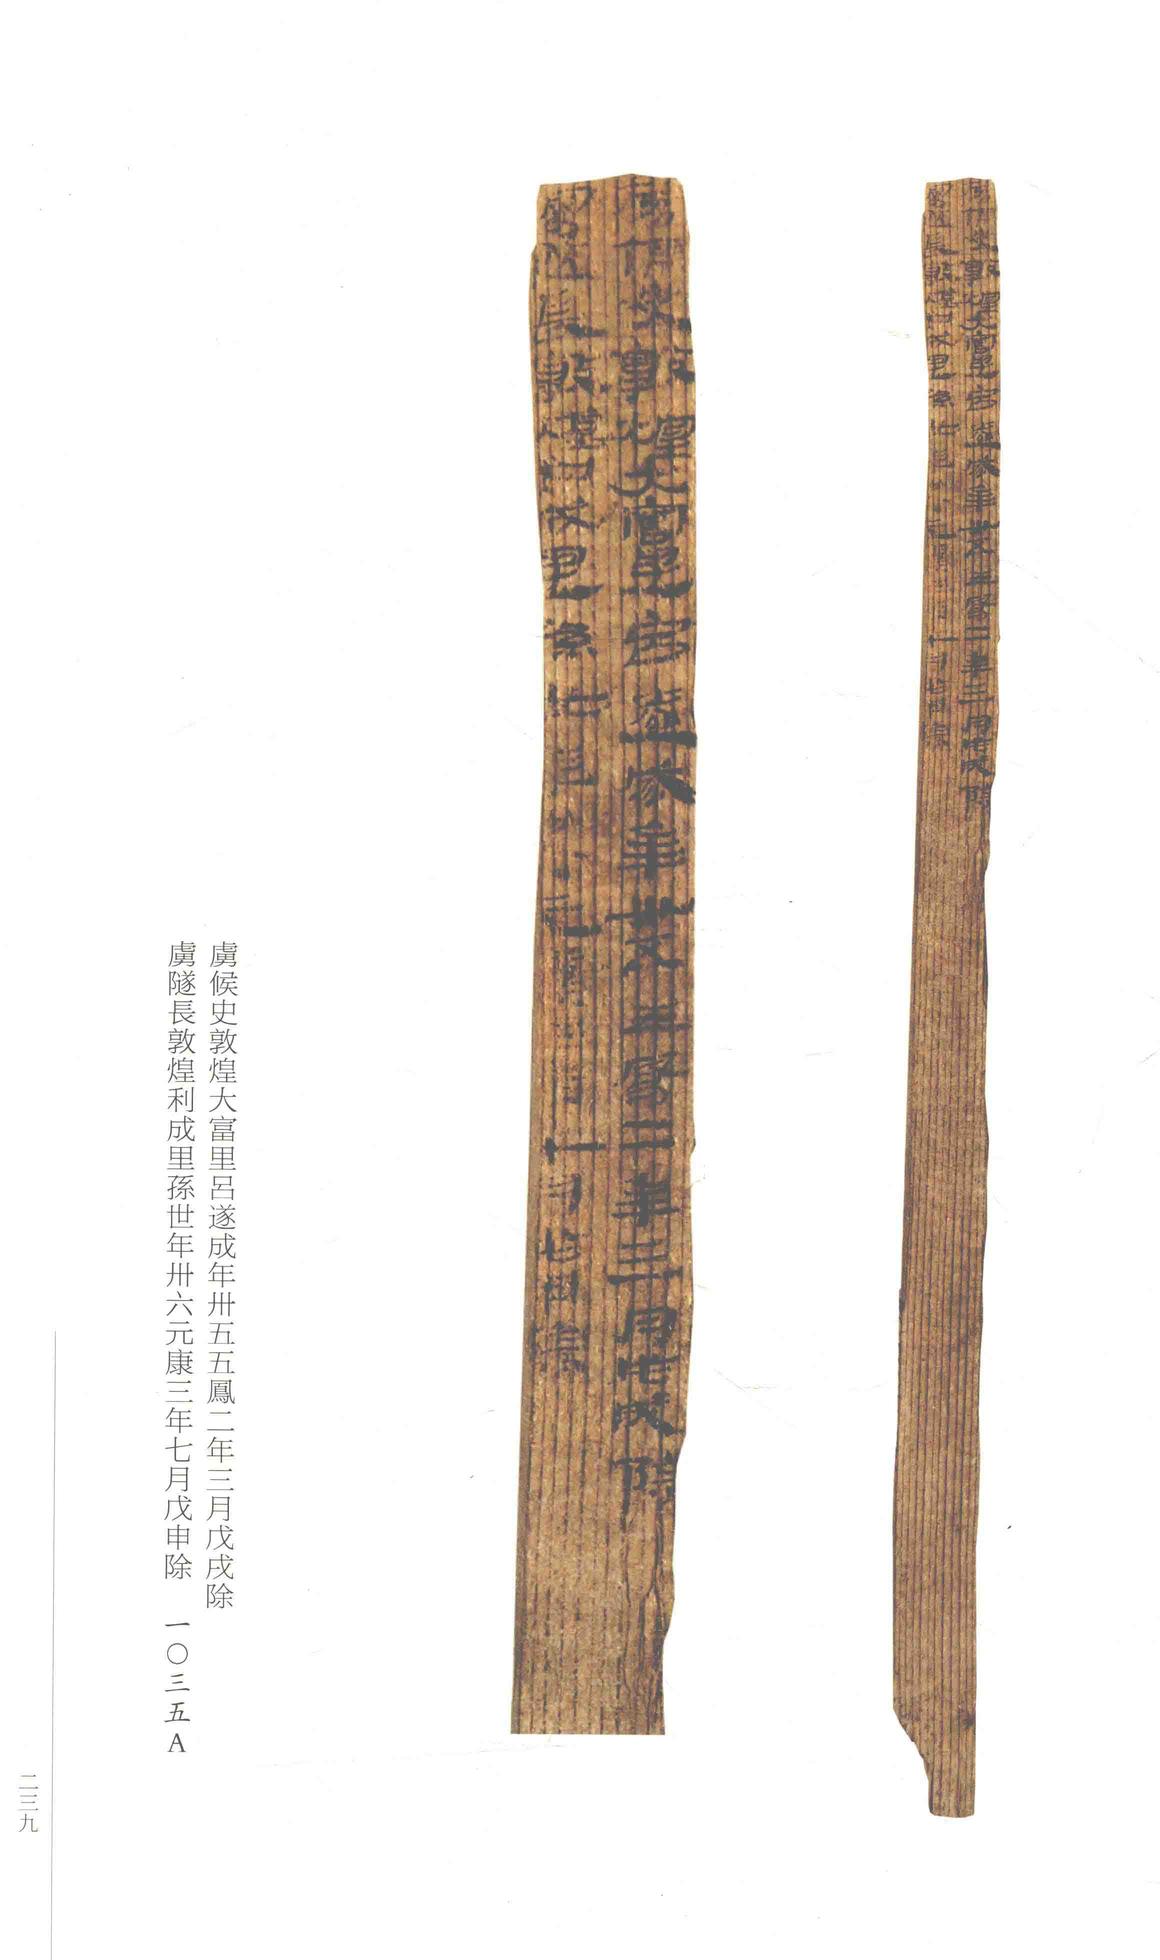 虜候史敦煌大富里呂遂成年卅五五鳳二年三月戊戌除
虜隧長敦煌利成里孫世年卅六元康三年七月戊申除 一〇三五A
二三九